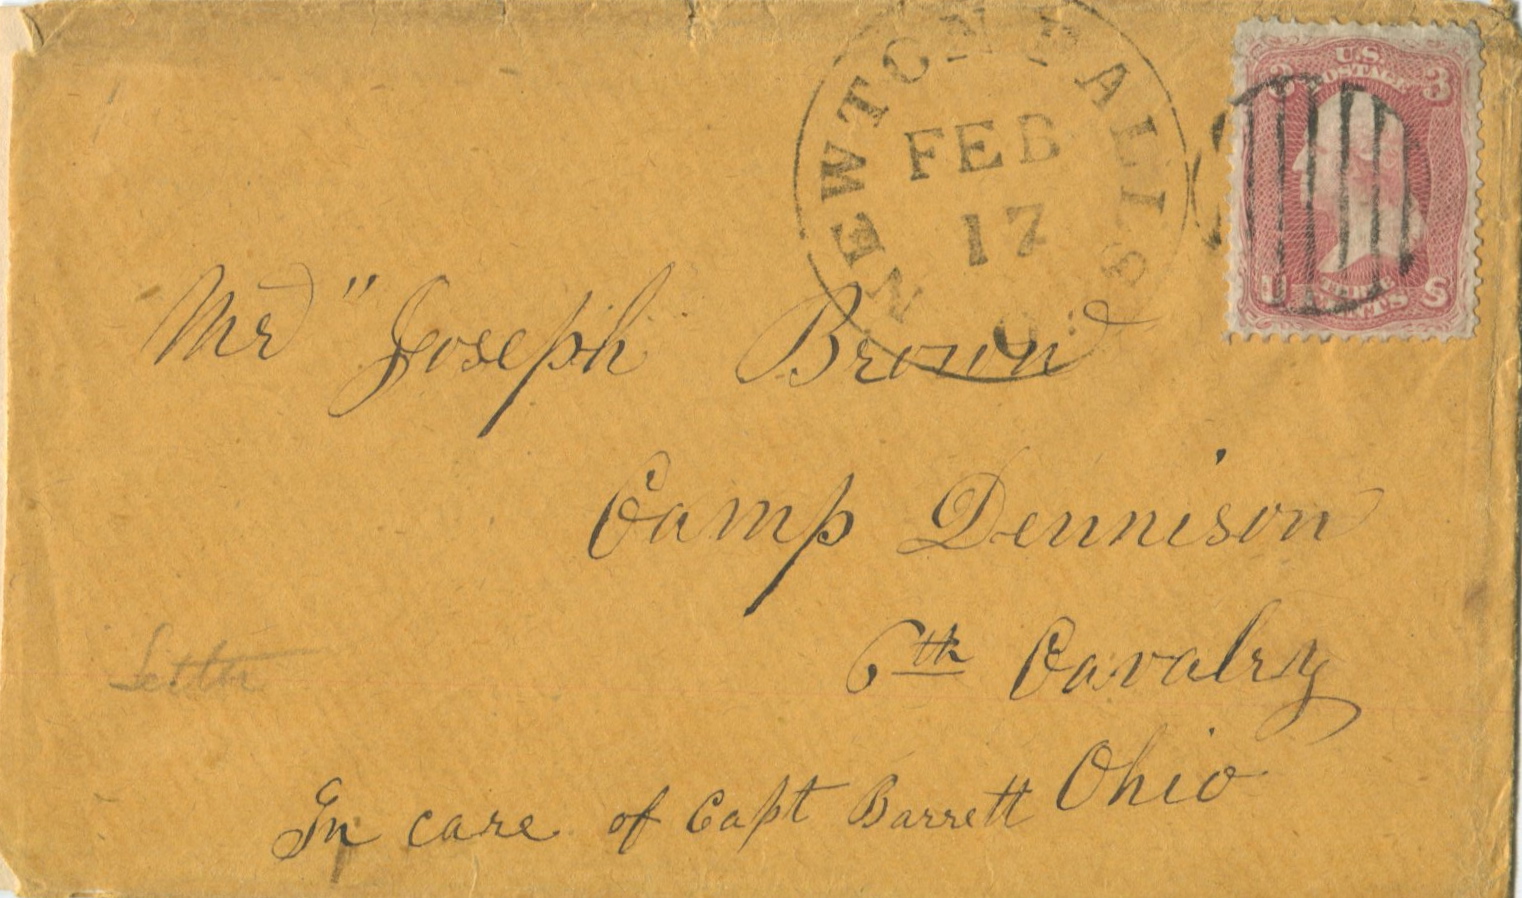 NEWTON FALLS
O.
FEB
17
U.S.
POSTAGE
3 3
THREE
CENTS
U S
Mr " Joseph Brown
Camp Dennison
6th Cavalry
Ohio
In care of Capt Barrett